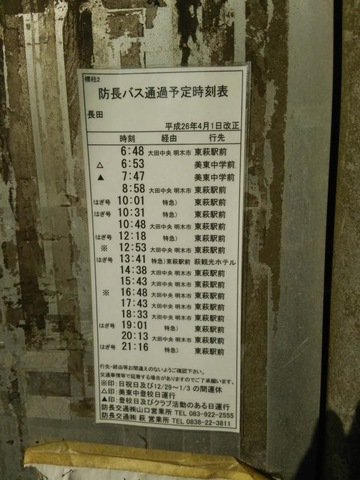 標柱2
防長バス通過予定時刻表
長田
平成26年4月1日改正
時刻 経由 行先
6:48 大田中央 明木市 東萩駅前
△ 6:53 美東中学前
▲ 7:47 美東中学前
8:58 大田中央 明木市 東萩駅前
はぎ号 10:01 特急) 東萩駅前
はぎ号 10:31 特急) 東萩駅前
10:48 大田中央 明木市 東萩駅前
はぎ号 12:18 特急) 東萩駅前
※ 12:53 大田中央 明木市 東萩駅前
はぎ号 13:41 特急)東萩駅前 萩観光ホテル
14:38 大田中央 明木市 東萩駅前
15:43 大田中央 明木市 東萩駅前
※ 16:48 大田中央 明木市 東萩駅前
17:43 大田中央 明木市 東萩駅前
18:33 大田中央 明木市 東萩駅前
はぎ号 19:01 特急) 東萩駅前
20:13 大田中央 明木市 東萩駅前
はぎ号 21:16 特急) 東萩駅前
行先・経由等お間違えのないようご確認下さい。
交通事情等で延着する場合がありますのでご了承願います。
※印：日祝日及び12/29～1/3の間運休
△印：美東中登校日運行
▲印：登校日及びクラブ活動のある日運行
防長交通㈱山口営業所 TEL 083-922-2555
防長交通㈱ 萩 営業所 TEL 0838-22-3811